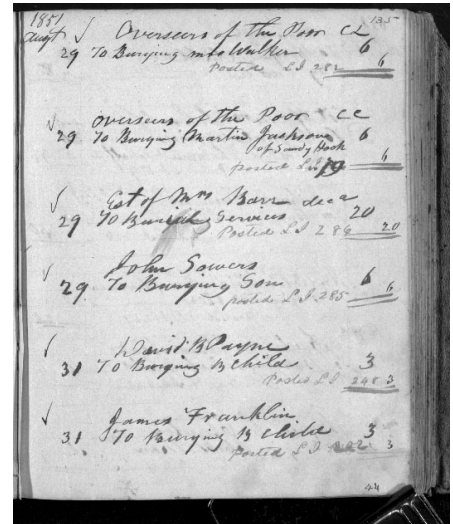 1851
135
Augt √ Overseers of the Poor CC
29 To Burying Mrs Walker 6
Posted L I 282 6
√ Overseers of the Poor CC
29 To Burying Martin Jackson 6
of Sandy Hook
posted L I 19 6
√ Est of Mrs Barr decd
29 To Burial Services 20
Posted L I 286 20
√ John Sowers
29 To Burying Son 6
posted L I 285 6
√ David B Payne
31 To Burying B Child 3
Posted L I 248 3
√ James Franklin
31 To Burying B Child 3
posted L I 3
44